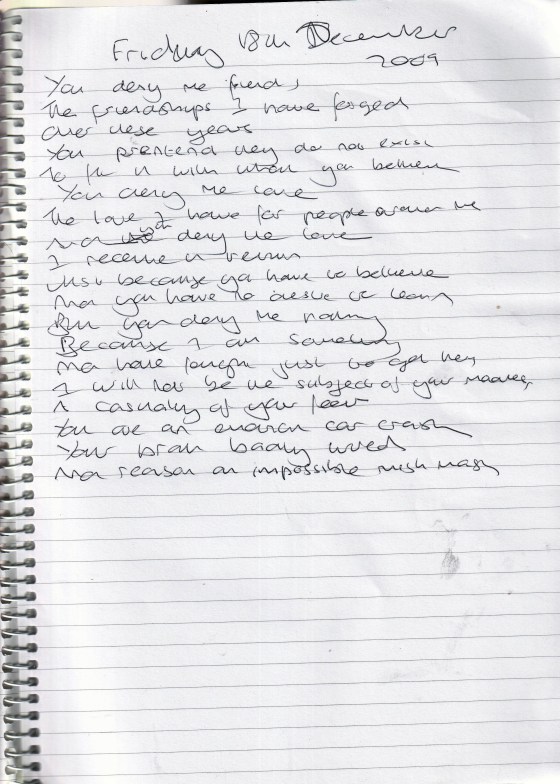 Friday 18th December
2009
You deny me friends
The friendships I have forged
Over these years
You pretend they do not exist
To fit in with what you believe
You deny me love
The love I have for people around me
deny the love
I receive in return
Just because you have to believe
you have to
But you deny me nothing
Because I am somebody
have fought just to get here
I will not be the subject of your
A casualty of your fear
You are an emotion car crash
Your brain badly wired
reason an impossible mish mash